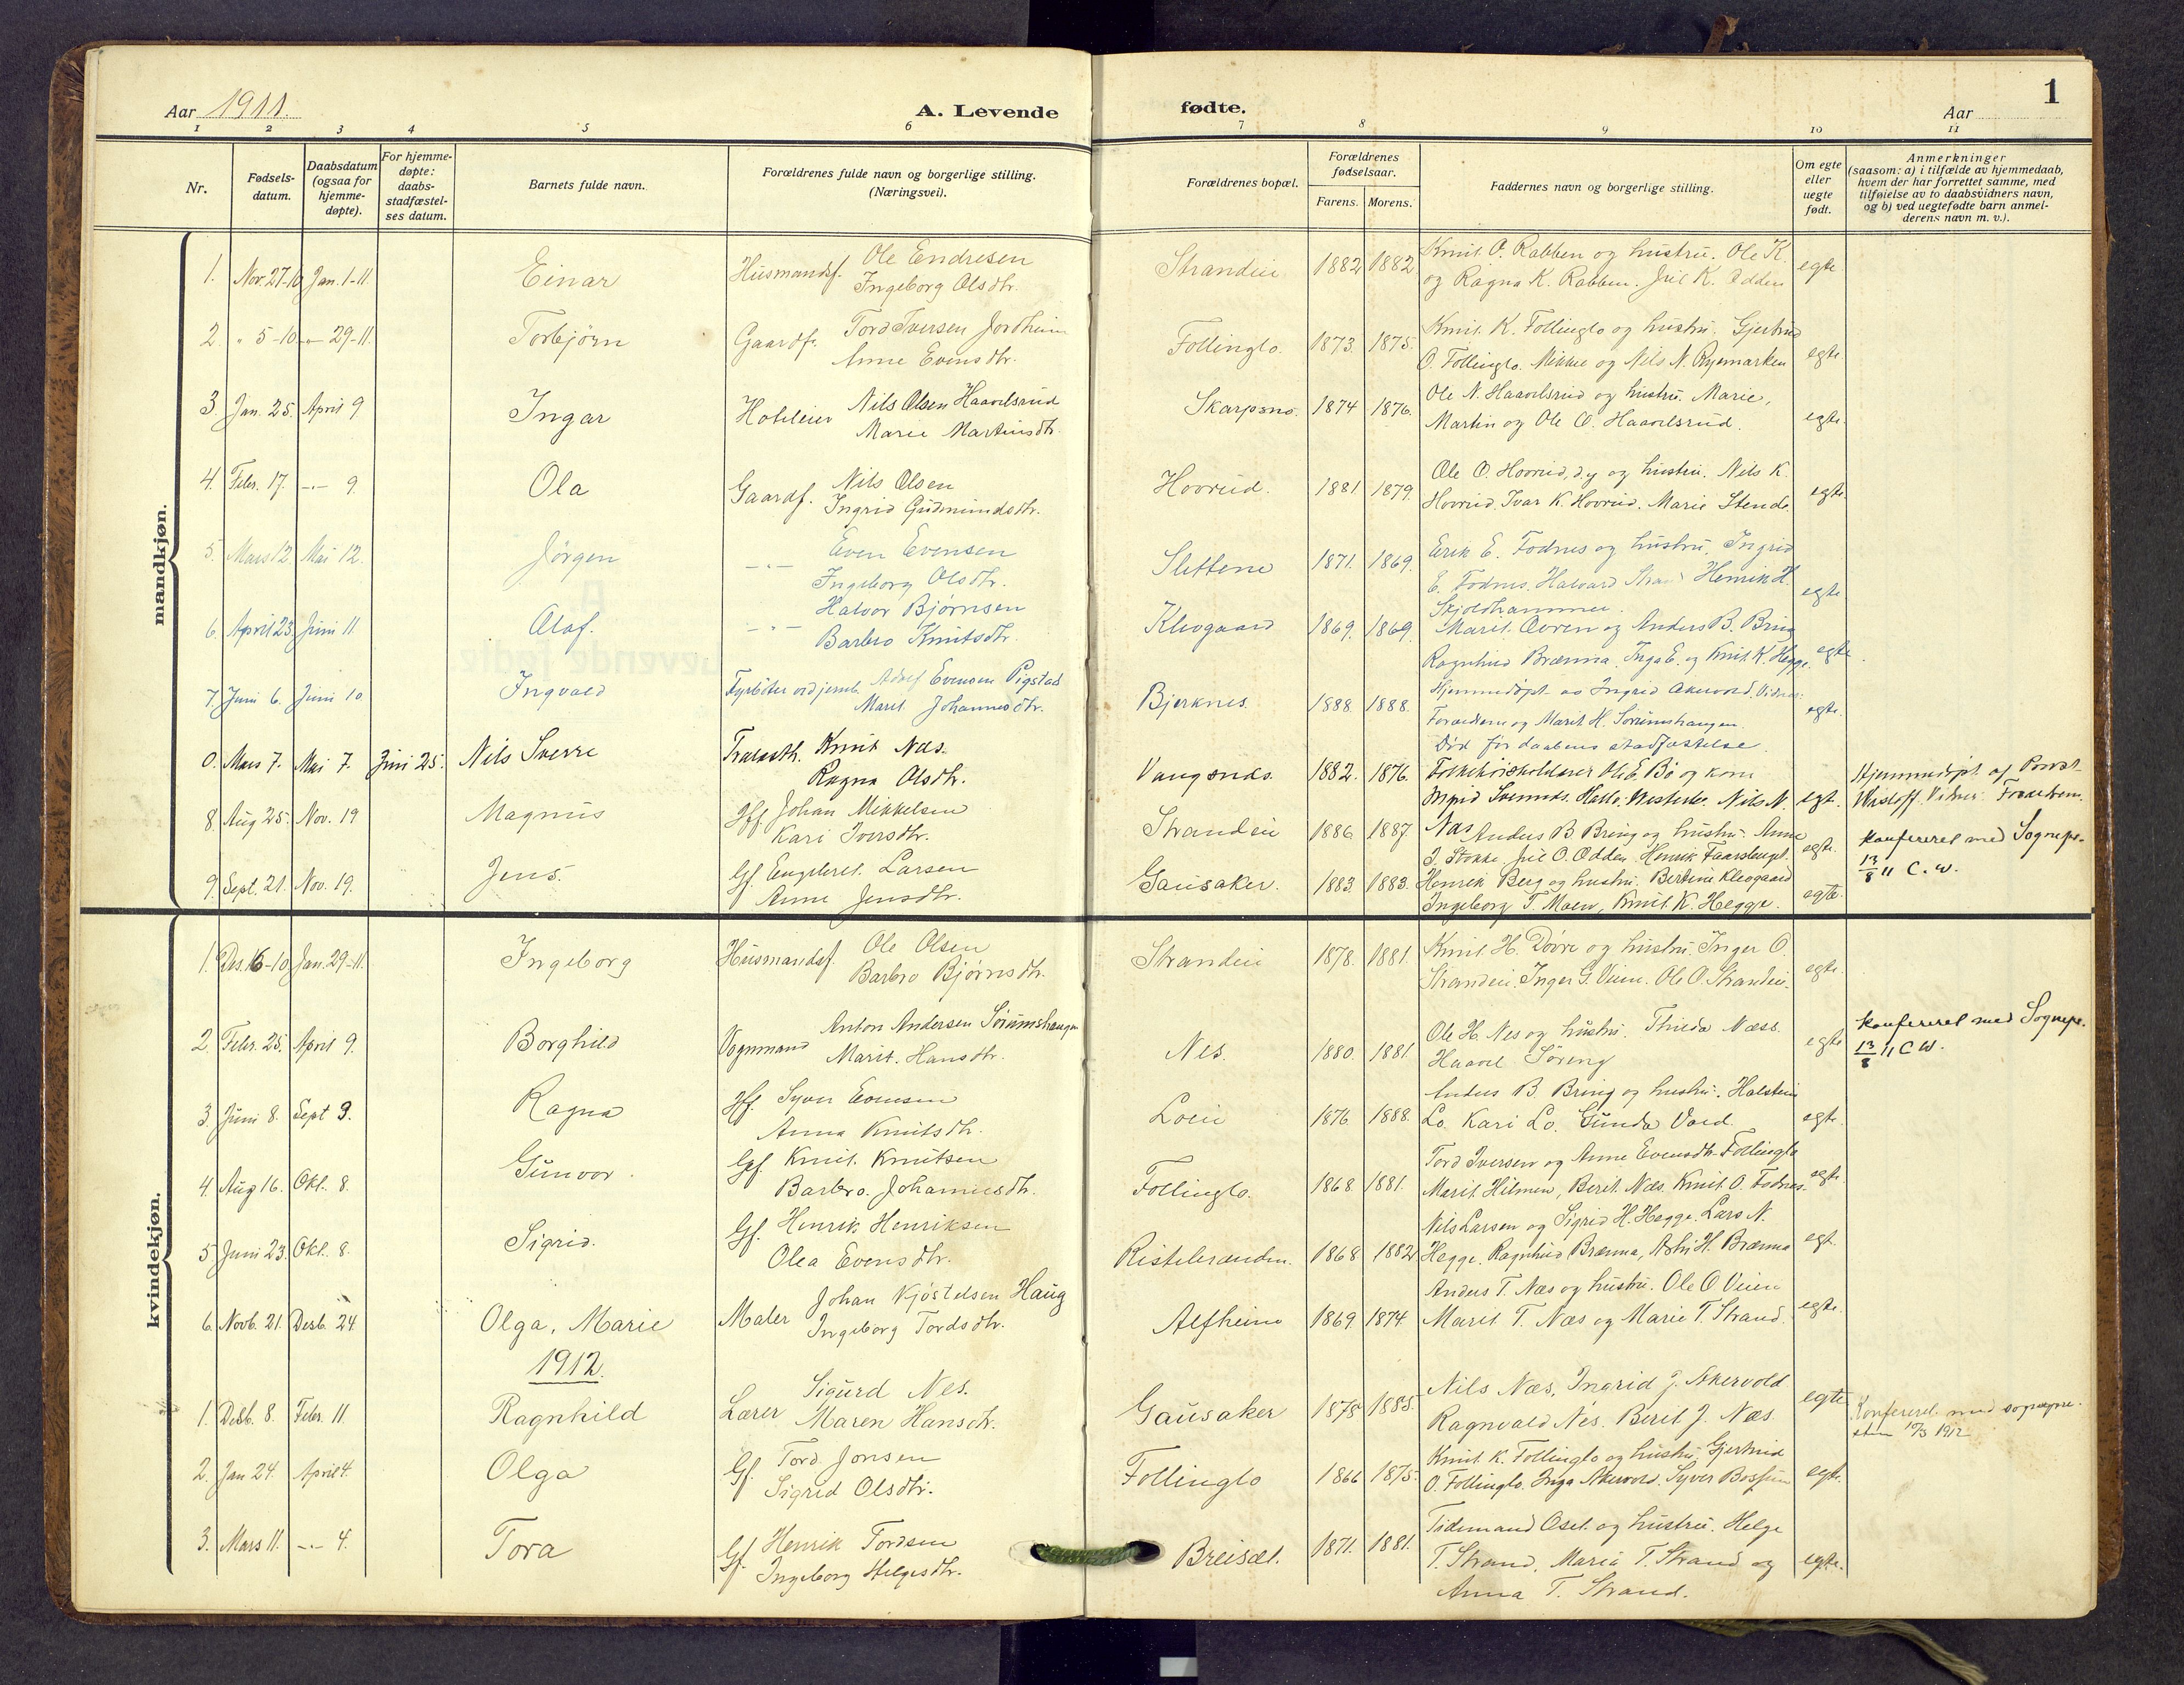 Aar 1911.
A. Levende
fødte.
Aar
1
1 2 3 4 5 6 7 8 9 10 11
Nr.
Fødsels-
datum.
Daabsdatum
(ogsaa for
hjemme-
døpte).
For hjemme-
døpte:
daabs-
stadfæstel-
ses datum.
Barnets fulde navn.
Forældrenes fulde navn og borgerlige stilling.
(Næringsvei).
Forældrenes bopæl.
Forældrenes
fødselsaar.
Farens. Morens.
Faddernes navn og borgerlige stilling.
Om egte
eller
uegte
født.
Anmerkninger
(saasom: a) i tilfælde av hjemmedaab,
hvem der har forrettet samme, med
tilføielse av to daabsvidners navn,
og b) ved uegtefødte barn anmel-
derens navn m. v.).
mandkjøn.
1. Nov. 27-10 Jan. 1-11. Einar Husmandsf. Ole Endresen
Ingeborg Olsdtr.
Strandeie 1882 1882 Knut O. Rabben og hustru. Ole K.
og Ragna K. Rabben. Juil K. Odden egte
2. " 5-10 -"- 29-11. Torbjörn Gaardf. Tord Iversen Jordheim
Anne Evensdtr.
Follinglo. 1873. 1875. Knut K. Follinglo og hustru. Gjertrud
O. Follinglo. Mikkel og Nils N. Ryemarken egte
3. Jan. 25. April 9 Ingar Hoteleier Nils Olsen Haavelsrud
Marie Martinsdtr.
Skarpsno. 1874 1876. Ole N. Haavelsrud og hustru. Marie,
Martin og Ole O. Haavelsrud. egte.
4. Febr. 17. -"- 9. Ola Gaardf. Nils Olsen
Ingrid Gudmundsdtr.
Hovrud. 1881 1879. Ole O. Hovrud, d.y og hustru. Nils K.
Hovrud. Ivar K. Hovrud. Marie Stende. egte.
5. Mars 12. Mai 12. Jörgen -"- Even Evensen
Ingeborg Olsdtr.
Slettene 1871. 1869. Erik E. Fodnes og hustru. Ingrid
E. Fodnes. Halvard Strand Henrik H.
Skjoldhammer. egte
6. April 23. Juni 11. Olaf. -"- Halvor Bjørnsen
Barbro Knutsdtr.
Klevgaard 1869. 1869. Marit. Overn og Anders B. Bring
Ragnhild Brænna, Inga E. og Knut K. Hegge. egte.
7. Juni 6. Juni 10. Ingvald Fyrböter ved jernb. Adolf Evensen Pigstad
Marit Johannesdtr.
Bjerknes. 1888. 1888. Hjemmedöpt av Ingrid Akervold. Vidner:
Forældrene og Marit H. Sørumshaugen.
Död för daabens stadfæstelse. egte.
0. Mars 7. Mai 7. Juni 25. Nils Sverre Knut Næs.
Ragna Olsdtr.
Vangsnes. 1882. 1876. Ole E. Bö og kone
Nils N.
Næs egt.
Hjemmedöpt af Provst
Vidner: Forældrene.
8. Aug 25. Nov. 19 Magnus Gff. Johan Mikkelsen
Kari Iversdtr.
Strandeie 1886. 1887. Anders B Bring og hustru. Anne
J. Stokke. Juil O. Odden. Henrik egte.
Konfereret med Sognepr.
13/8 11 C. W.
9. Sept. 21. Nov. 19. Jens. Gf. Engebret. Larsen
Anne Jensdtr.
Gausaker. 1883. 1883. Henrik Berg og hustru. Bertine Klevgaard
Ingeborg T. Moen, Knut K. Hegge. egte.
kvindekjøn.
1. Des. 16-10 Jan. 29-11. Ingeborg Husmandsf. Ole Olsen
Barbro Bjørnsdtr.
Strandeie 1878. 1881. Knut H. Dövre og hustru. Inger O.
Strandeie. Inger G. Veien. Ole O. Strandeie. egte.
2. Febr. 25. April 9. Borghild Vognmand Anton Andersen Sørumshaugen
Marit. Hansdtr.
Nes. 1880. 1881. Ole H. Nes og hustru. Thilda Næss.
Haavel Söreng egte
Konfereret med Sognepr.
13/8 11 C W.
3. Juni 8. Sept 3. Ragna Gff. Syver Evensen
Anna Knutsdtr.
Loeie 1876. 1888. Anders B. Bring og hustru. Halstein
Lo. Kari Lo. Gunda Vold. egte.
4. Aug 16. Okt. 8. Gunvor. Gf. Knut. Knutsen
Barbro. Johannesdtr.
Follinglo. 1868. 1881. Tord Iversen og Anne Evensdtr. Follinglo
Marit Hilmen, Berit Næs. Knut O. Fodnes. egte.
5 Juni 23. Okt. 8. Sigrid. Gf. Henrik Henriksen
Olea Evensdtr.
Ristebranden. 1868 1882 Nils Larsen og Sigrid H. Hegge. Lars N.
Hegge. Ragnhild Brænna, Astri H. Brænna egt.
6. Novb. 21. Desb. 24. Olga, Marie Maler Johan Kjöstelsen Haug
Ingeborg Tordsdtr.
Alfheim 1869. 1874. Anders T. Næs og hustru. Ole O Veien
Marit T. Næs og Marie T. Strand. egte.
1912.
1. Desb. 8. Febr. 11. Ragnhild Lærer Sigurd Nes.
Maren Hansdtr.
Gausaker 1878 1885. Nils Næs, Ingrid J. Akervold
Ragnvald Nes. Berit J. Næs. egte
Konfereret med sognepre-
sten 1912
2. Jan 24. April 4. Olga Gf. Tord Jonsen
Sigrid Olsdtr.
Follinglo 1866 1875. Knut K. Follinglo og hustru, Gjertrud
O. Follinglo. Inga Akervold. Syver Bossum egte.
3. Mars 11. -"- 4. Tora Gf. Henrik Tordsen
Ingeborg Helgesdtr.
Breiset. 1871. 1881. Tidemand Oset. og hustru. Helge
T. Strand, Maria T. Strand og
Anna T. Strand. egte.